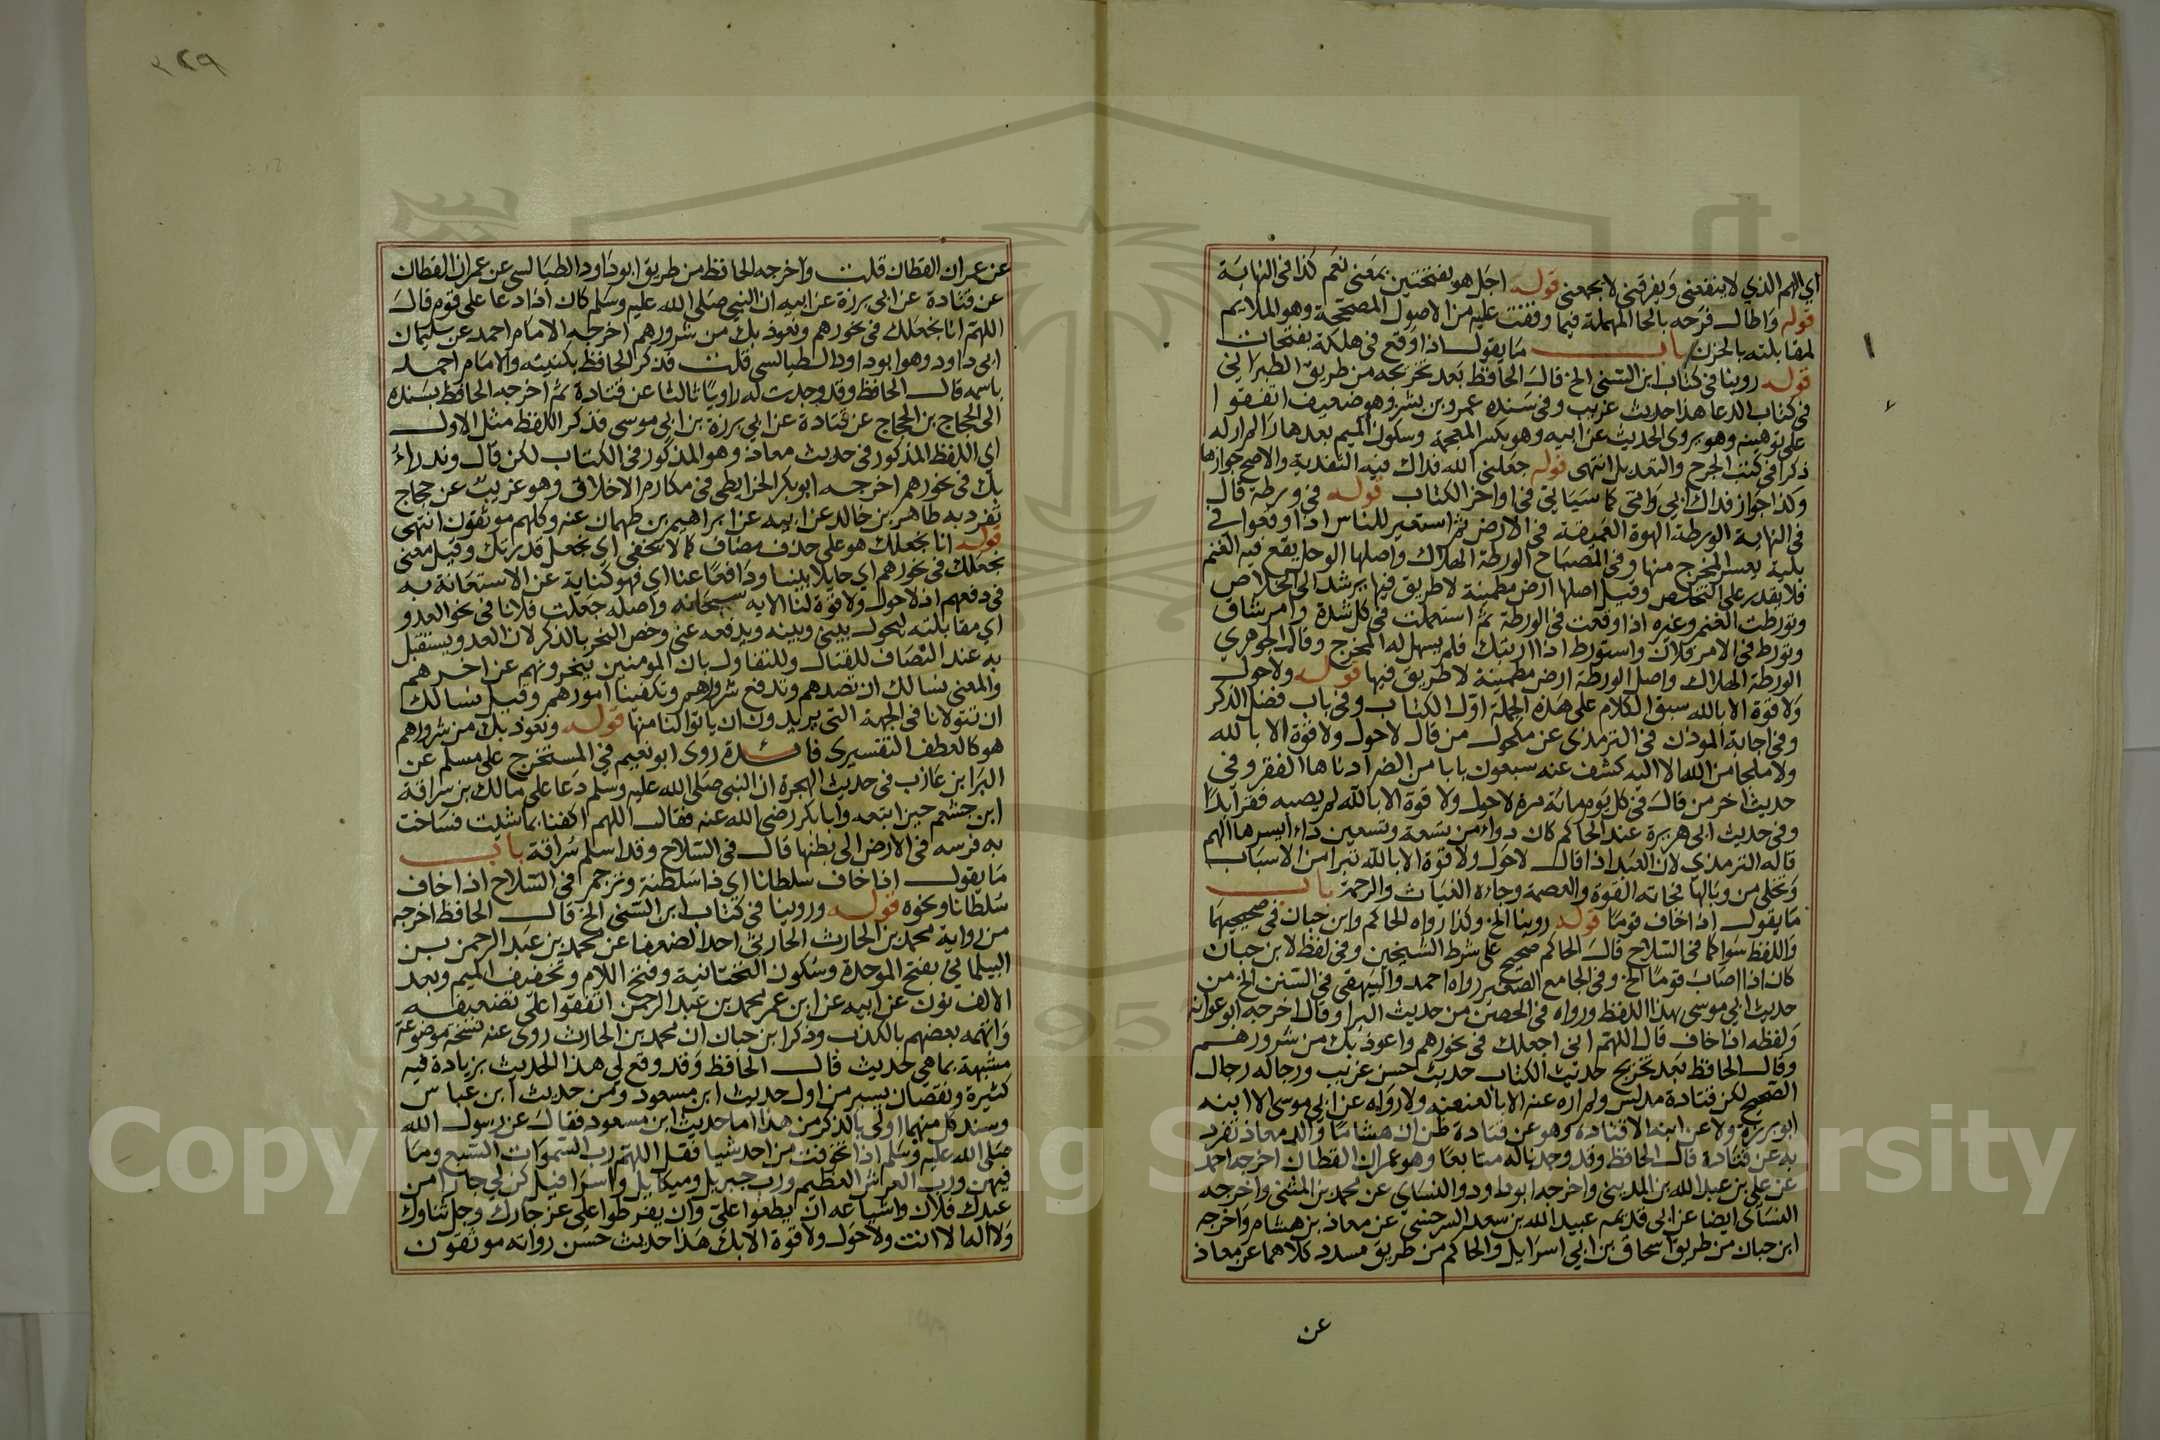 اي الهم الذي لا ينفعني ويفرقني لا يجمعني قوله اجل هو بفتحتين بمعنى نعم كذا في النهاية
قوله واطال فرحه بالحا المهملة فيما وقفت عليه من الاصول المصححة وهو الملايم
لمقابلته بالحزن باب ما يقول اذا وقع في هلكة بفتحات
قوله روينا في كتاب ابن السني الخ قال الحافظ بعد تخريجه من طريق الطبراني
في كتاب الدعا هذا حديث غريب وفي سنده عمرو بن بشر وهو ضعيف اتفقوا
على توهينه وهو يروي الحديث عن ابيه وهو بكسر المعجمة وسكون الميم بعدها را لم ار له
ذكرا في كتب الجرح والتعديل انتهى قوله جعلني الله فداك فيه التفدية والاصح جوازها
وكذا جواز فداك ابي وامي كما سياتي في اواخر الكتاب قوله في ورطة قال
في النهاية الورطة الهوة العميقة في الارض ثم استعير للناس اذا وقعوا في
بلية يعسر المخرج منها وفي المصباح الورطة الهلاك واصلها الوحل يقع فيه الغنم
فلا يقدر على التخلص وقيل اصلها ارض مطمئنة لا طريق فيها يرشد الى الخلاص
وتورطت الغنم وغيره اذا وقعت في الورطة ثم استعملت في كل شدة وامر شاق
وتورط في الامر فلان واستورط اذا ارتبك فلم يسهل له المخرج وقال الجوهري
الورطة الهلاك واصل الورطة ارض مطمئنة لا طريق فيها قوله ولا حول
ولا قوة الا بالله سبق الكلام على هذه الجملة اول الكتاب وفي باب فضل الذكر
وفي اجابة الموذن في الترمذي عن مكحول من قال لا حول ولا قوة الا بالله
ولا ملجا من الله الا اليه كشف عنه سبعون بابا من الضر ادناها الفقر وفي
حديث اخر من قال في كل يوم مائة مرة لا حول ولا قوة الا بالله لم يصبه فقر ابدا
وفي حديث ابي هريرة عند الحاكم كان دواء من تسعة وتسعين داء ايسرها الهم
قاله الترمذي لان العبد اذا قال لا حول ولا قوة الا بالله تبرا من الاسباب
وتخلى من وبالها فجاته القوة والعصمة وجاءه الغياث والرحمة باب
ما يقول اذا خاف قوما قوله روينا الخ وكذا رواه الحاكم وابن حبان في صحيحيهما
واللفظ سوا كما في السلاح قال الحاكم صحيح على شرط الشيخين وفي لفظ لابن حبان
كان اذا اصاب قوما الخ وفي الجامع الصغير رواه احمد والبيهقي في السنن الخ من
حديث ابي موسى بهذا اللفظ ورواه في الحصن من حديث البرا وقال اخرجه ابو عوانة
ولفظه اذا خاف قال اللهم اني اجعلك في نحورهم واعوذ بك من شرورهم
وقال الحافظ بعد تخريج حديث الكتاب حديث حسن غريب ورجاله رجال
الصحيح لكن قتادة مدلس ولم اره عنه الا بالعنعنة ولا رواه عن ابي موسى الا ابنه
ابو بردة ولا عن ابنه الا قتادة وهو عن قتادة ظن ان هشاما والد معاذ تفرد
به عن قتادة قال الحافظ وقد وجدنا له متابعا وهو عمران القطان اخرجه احمد
عن علي بن عبد الله بن المديني واخرجه ابو داود والنساي عن محمد بن المثنى واخرجه
النساي ايضا عن ابي قديمه عبيد الله بن سعد السرخسي عن معاذ بن هشام واخرجه
ابن حبان من طريق اسحاق بن ابي اسرايل والحاكم من طريق مسدد كلاهما عن معاذ
عن
٣٢٩
عن عمران القطان قلت واخرجه الحافظ من طريق ابو داود الطيالسي عن عمران القطان
عن قتادة عن ابي برزة عن ابيه ان النبي صلى الله عليه وسلم كان اذا دعا على قوم قال
اللهم انا نجعلك في نحورهم ونعوذ بك من شرورهم اخرجه الامام احمد عن سليمان
ابي داود وهو ابو داود الطيالسي قلت فذكر الحافظ بكنيته والامام احمد
باسمه قال الحافظ وقد وجدت له راويا ثالثا عن قتادة ثم اخرجه الحافظ بسنده
الى الحجاج بن الحجاج عن قتادة عن ابي برزة بن ابي موسى فذكر اللفظ مثل الاول
اي اللفظ المذكور في حديث معاذ وهو المذكور في الكتاب لكن قال وندراء
بك في نحورهم اخرجه ابو بكر الخرايطي في مكارم الاخلاق وهو غريب عن حجاج
تفرد به طاهر بن خالد عن ابيه عن ابراهيم بن طهمان عنه وكلهم موثقون انتهى
قوله انا نجعلك هو على حذف مضاف كما لا يخفى اي نجعل قدرتك وقيل معنى
نجعلك في نحورهم اي حايلا بيننا ودافعا عنا اي فهو كناية عن الاستعانة به
في دفعهم اذ لا حول ولا قوة لنا الا به سبحانه واصله جعلت فلانا في نحو العدو
اي مقابلته ليحول بيني وبينه ويدفعه عني وخص النحر بالذكر لان العدو يستقبل
به عند التصاف للقتال وللتفاول بان المومنين ينحرونهم عن اخرهم
والمعنى نسالك ان تصدهم وتدفع شرورهم وتكفينا امورهم وقيل نسالك
ان تتولانا في الجهة التي يريدون ان ياتوا كنا منها قوله ونعوذ بك من شرورهم
هو كالعطف التفسيري فائدة روى ابو نعيم في المستخرج على مسلم عن
البرا بن عازب في حديث الهجرة ان النبي صلى الله عليه وسلم دعا على مالك بن سراقة
ابن جشم حين اتبعه وابا بكر رضي الله عنه فقال اللهم اكفنا بما شئت فساخت
به فرسه في الارض الى بطنها قال في السلاح وقد اسلم سراقة باب
ما يقول اذا خاف سلطانا اي ذا سلطنة وترجم في السلاح اذا خاف
سلطانا ونحوه قوله وروينا في كتاب ابن السني الخ قال الحافظ اخرجه
من رواية محمد بن الحارث الحارثي احد الضعفا عن محمد بن عبد الرحمن بن
البيلماني بفتح الموحدة وسكون التحتانية وفتح اللام وتخفيف الميم وبعد
الالف نون عن ابيه عن ابن عمر محمد بن عبد الرحمن اتفقوا على تضعيفه
واتهمه بعضهم بالكذب وذكر ابن حبان ان محمد بن الحارث روى عنه نسخة موضوعة
مشبهة بما هي حديث قال الحافظ وقد وقع لي هذا الحديث بزيادة فيه
كثيرة ونقصان يسير من اول حديث ابن مسعود ومن حديث ابن عباس
وسند كل منهما اولى بالذكر من هذا اما حديث ابن مسعود فقال عن رسول الله
صلى الله عليه وسلم اذا تخوفت من احد شيا فقل اللهم رب السموات السبع وما
فيهن ورب العرش العظيم ورب جبريل وميكاييل واسرافيل كن لي جارا من
عبدك فلان واشياعه ان يطغوا علي وان يفرطوا علي عز جارك وجل ثناوك
ولا اله الا انت ولا حول ولا قوة الا بك هذا حديث حسن رواته موثقون
Copyright © King Saud University